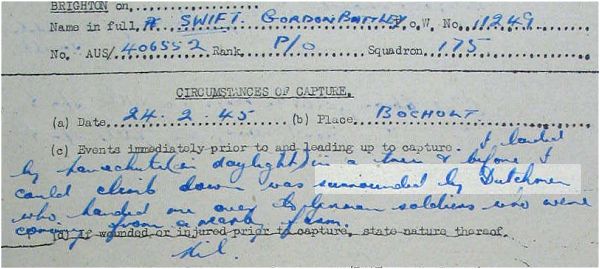 BRIGHTON on
Name in full SWIFT. GORDON BATTLEY P.o.W. No. 11249
No. AUS/ 406552 Rank P/O Squadron 175
CIRCUMSTANCES OF CAPTURE.
(a) Date 24.2.45 (b) Place BOCHOLT.
(c) Events immediately prior to and leading up to capture. I landed
by parachute (in daylight) in a tree & before I
could climb down was surrounded by Dutchmen
who handed me over to German soldiers who were
coming from a nearby farm.
(d) If wounded or injured prior to capture, state nature thereof.
Nil.